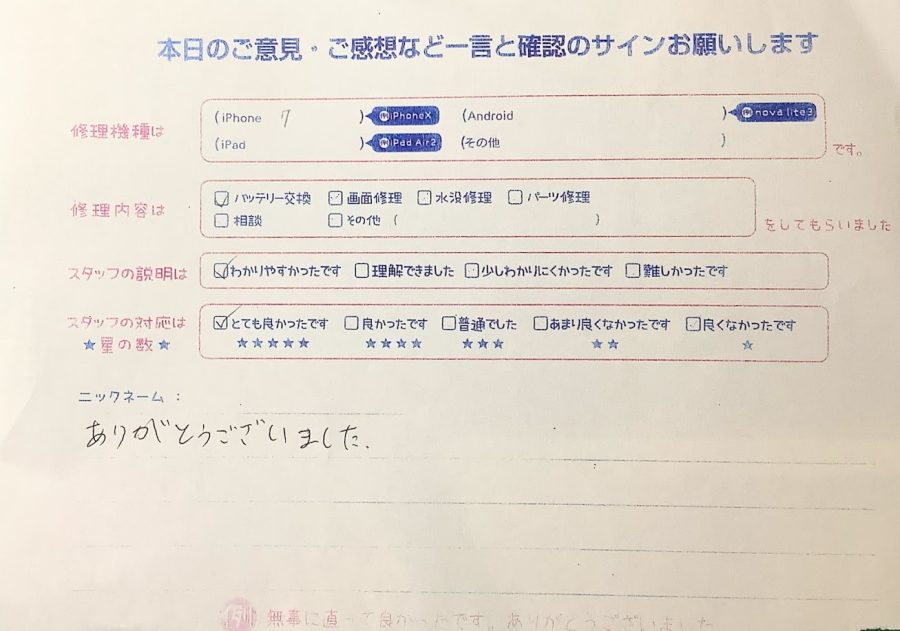 本日のご意見・ご感想など一言と確認のサインお願いします
修理機種は (iPhone 7 ) 例 iPhoneX (Android ) 例 nova lite3
(iPad ) 例 iPad Air2 (その他 ) です。
修理内容は ☑バッテリー交換 □画面修理 □水没修理 □パーツ修理
□相談 □その他 ( ) をしてもらいました
スタッフの説明は ☑わかりやすかったです □理解できました □少しわかりにくかったです □難しかったです
スタッフの対応は ☑とても良かったです □良かったです □普通でした □あまり良くなかったです □良くなかったです
★星の数★ ★★★★★ ★★★★ ★★★ ★★ ★
ニックネーム：
ありがとうございました.
例 無事に直って良かったです。ありがとうございました